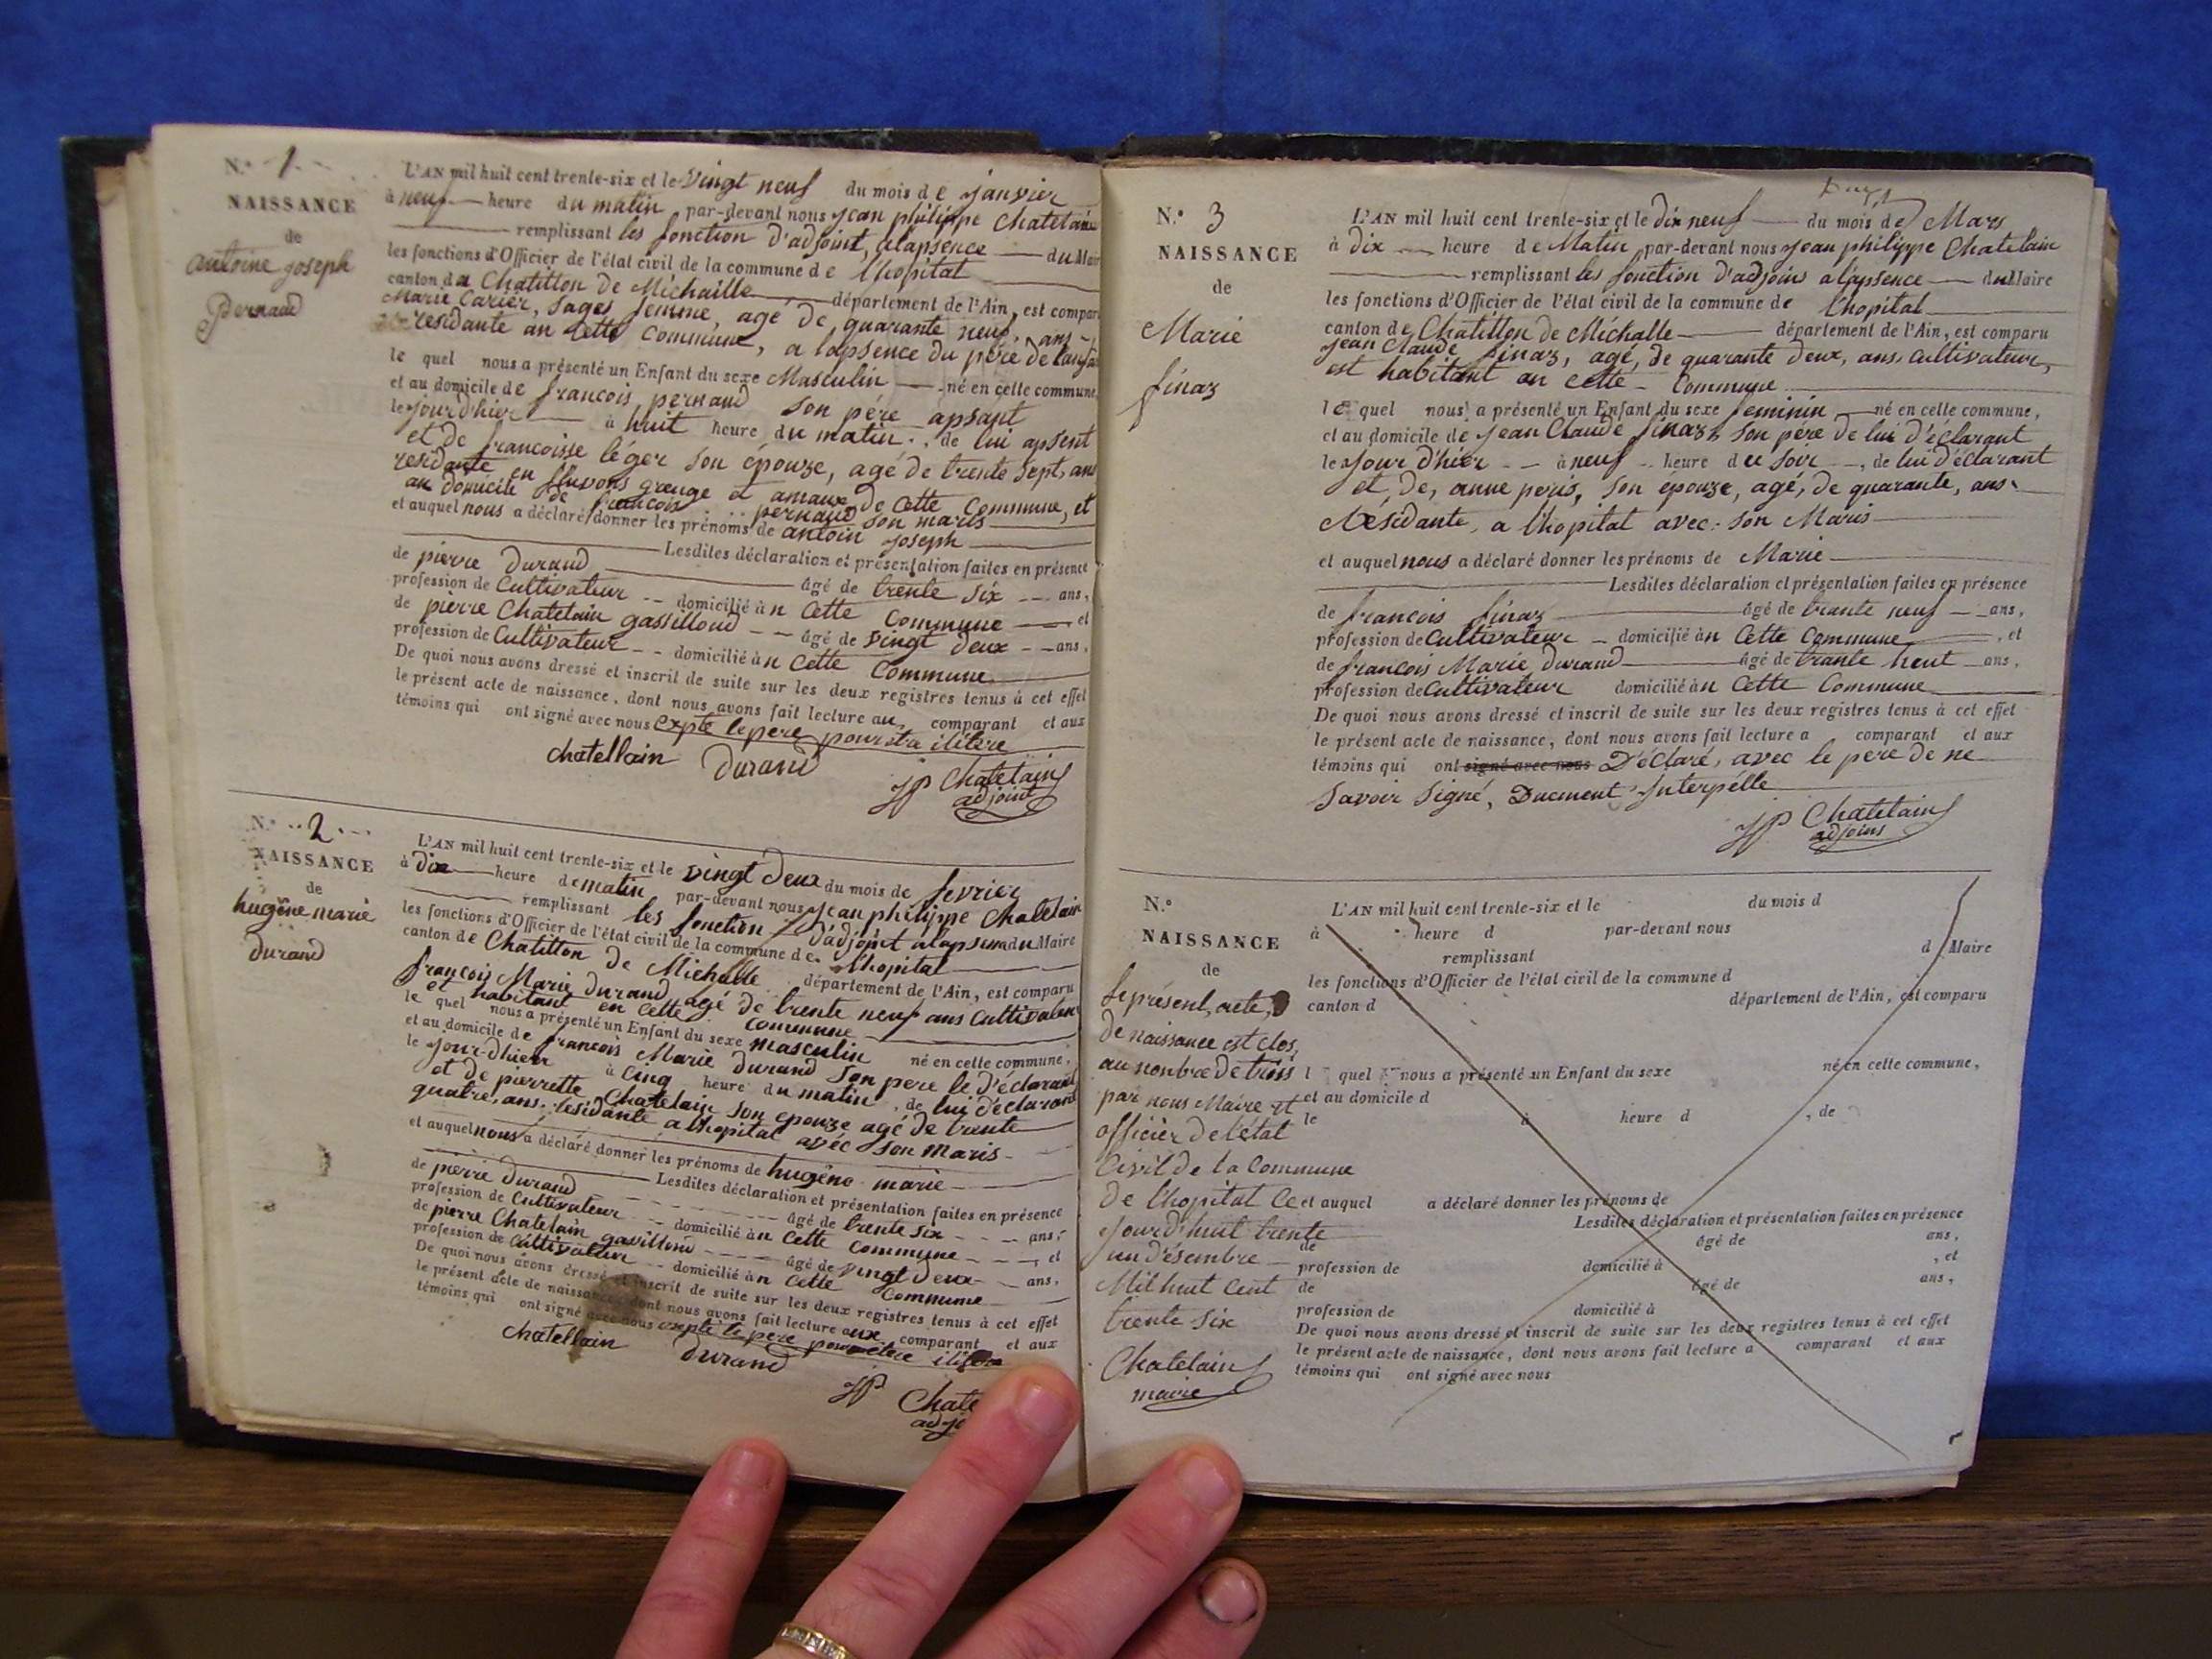 N.° 1
NAISSANCE
de
antoine joseph
pernaud
L'AN mil huit cent trente-six et le vingt neuf du mois de janvier
à neuf heure du matin par-devant nous jean philippe Chatelain
remplissant les fonction d'adjoint, alapsence du Maire
les fonctions d'Officier de l'état civil de la commune de l'hopital
canton du Chatillon de Michaille département de l'Ain, est comparu
Marie Carier, sages femme, age de quarante neuf, ans
residante an cette Commune, a lapsence du père de lanfan
le quel nous a présenté un Enfant du sexe Masculin né en cette commune,
et au domicile de francois pernaud son père apsant
le jour d'hier à huit heure du matin, de lui apsent
et de francoisse léger son épouze, agé de trente sept, ans
residante en grange et de cette Commune, et
au domicile de francois pernaud son maris
et auquel nous a déclaré donner les prénoms de antoin joseph
Lesdites déclaration et présentation faites en présence
de pierre durand âgé de trente six ans,
profession de Cultivateur domicilié àn cette Commune et
de pierre Chatelain gassilloud âgé de vingt deux ans,
profession de Cultivateur domicilié àn cette Commune
De quoi nous avons dressé et inscrit de suite sur les deux registres tenus à cet effet
le présent acte de naissance, dont nous avons fait lecture au comparant et aux
témoins qui ont signé avec nous expte le pere pour ilitere
chatellain durand JP Chatelain
adjoint
N.° 2
NAISSANCE
de
hugêne marie
durand
L'AN mil huit cent trente-six et le vingt deux du mois de fevrier
à dix heure de matin par-devant nous jean philippe Chatelain
remplissant les fonction d'adjoint alapsence du Maire
les fonctions d'Officier de l'état civil de la commune de l'hopital
canton de Chatillon de Michalle département de l'Ain, est comparu
françois Marie durand agé de trente neuf ans Cultivateur
et habitant en cette commune
le quel nous a présenté un Enfant du sexe masculin né en cette commune,
et au domicile de francois Marie durand son pere le d'éclarant
le jour d'hier à cinq heure du matin, de lui d'éclarant
et de pierrette Chatelain son epouze agé de trente
quatre, ans, residante a l'hopital avec son maris
et auquel nous a déclaré donner les prénoms de hugêne marie
Lesdites déclaration et présentation faites en présence
de pierre durand âgé de trente six ans,
profession de Cultivateur domicilié àn cette Commune et
de pierre Chatelain gavilloud âgé de vingt deux ans,
profession de Cultivateur domicilié àn cette Commune
De quoi nous avons dressé et inscrit de suite sur les deux registres tenus à cet effet
le présent acte de naissance, dont nous avons fait lecture aux comparant et aux
témoins qui ont signé avec nous expte le pere pour etre
chatellain durand JP Chate
N.° 3
NAISSANCE
de
Marie
finaz
L'AN mil huit cent trente-six et le dix neuf du mois de Mars
à dix heure de Matin par-devant nous jean philippe Chatelain
remplissant les fonction d'adjoins a l'apsence du Maire
les fonctions d'Officier de l'état civil de la commune de l'hopital
canton de Chatillon de Michalle département de l'Ain, est comparu
jean Claude finaz, agé, de quarante deux, ans, cultivateur,
est habitant an cette Commune
le quel nous a présenté un Enfant du sexe feminin né en cette commune,
et au domicile de jean Claude finaz, son pére de lui d'éclarant
le jour d'hier à neuf heure du soir, de lui d'éclarant
et, de, anne peris, son épouze, agé, de quarante, ans
Résidante, a l'hopital avec son Maris
et auquel nous a déclaré donner les prénoms de Marie
Lesdites déclaration et présentation faites en présence
de francois finaz âgé de trante neuf ans,
profession de Cultivateur domicilié àn Cette Commune, et
de francois Marie durand âgé de trante heut ans,
profession de Cultivateur domicilié àn Cette Commune
De quoi nous avons dressé et inscrit de suite sur les deux registres tenus à cet effet
le présent acte de naissance, dont nous avons fait lecture a comparant et aux
témoins qui ont signé avec nous D'éclaré, avec le pere de ne
savoir signé, Duement Interpélle
JP Chatelain
adjoins
N.°
NAISSANCE
de
le présent, acte,
de naissance est clos,
au nonbre de trois
par nous Maire et
officier de l'état
Civil de la Commune
de l'hopital Ce
jourd'huit trente
un d'ésembre
Mil huit Cent
trente six
Chatelain
maire
L'AN mil huit cent trente-six et le du mois d
à heure d par-devant nous
remplissant d Maire
les fonctions d'Officier de l'état civil de la commune d
canton d département de l'Ain, est comparu
l quel nous a présenté un Enfant du sexe né en cette commune,
et au domicile d
le à heure d , de
et auquel a déclaré donner les prénoms de
Lesdites déclaration et présentation faites en présence
de âgé de ans,
profession de domicilié à , et
de âgé de ans,
profession de domicilié à
De quoi nous avons dressé et inscrit de suite sur les deux registres tenus à cet effet
le présent acte de naissance, dont nous avons fait lecture a comparant et aux
témoins qui ont signé avec nous